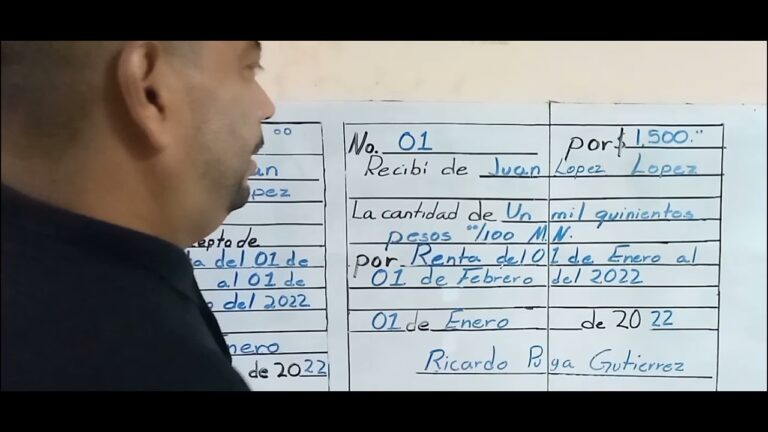 00
an
pez
epto de
a del 01 de
al 01 de
o del 2022
nero
de 2022
No. 01 por $ 1,500.00
Recibí de Juan Lopez Lopez
La cantidad de Un mil quinientos
pesos 00/100 M.N.
por Renta del 01 de Enero al
01 de Febrero del 2022
01 de Enero de 20 22
Ricardo Puga Gutierrez